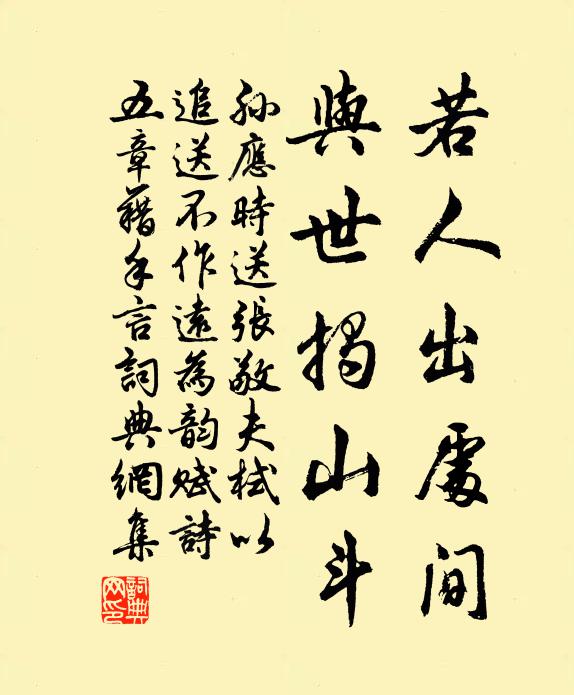 若人出處間
與世揭山斗
孙應時送張敬夫栻以
追送不作遠為韵赋詩
五章藉手言詞典網集
詞典網印